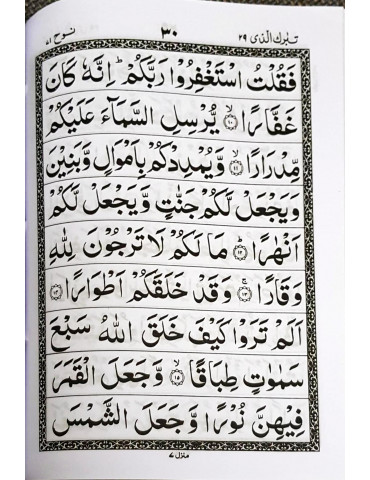 تبٰرك الذى ٢٩ ٣٠ نوح ٧١
فَقُلْتُ اسْتَغْفِرُوْا رَبَّكُمْ ؕ اِنَّهٗ كَانَ
غَفَّارًا ۙ﴿۱۰﴾ يُّرْسِلِ السَّمَآءَ عَلَيْكُمْ
مِّدْرَارًا ۙ﴿۱۱﴾ وَّيُمْدِدْكُمْ بِاَمْوَالٍ وَّبَنِيْنَ
وَيَجْعَلْ لَّكُمْ جَنّٰتٍ وَّيَجْعَلْ لَّكُمْ
اَنْهٰرًا ؕ﴿۱۲﴾ مَا لَكُمْ لَا تَرْجُوْنَ لِلّٰهِ
وَقَارًا ۚ﴿۱۳﴾ وَقَدْ خَلَقَكُمْ اَطْوَارًا ﴿۱۴﴾
اَلَمْ تَرَوْا كَيْفَ خَلَقَ اللّٰهُ سَبْعَ
سَمٰوٰتٍ طِبَاقًا ۙ﴿۱۵﴾ وَّجَعَلَ الْقَمَرَ
فِيْهِنَّ نُوْرًا وَّجَعَلَ الشَّمْسَ
منزل ٧